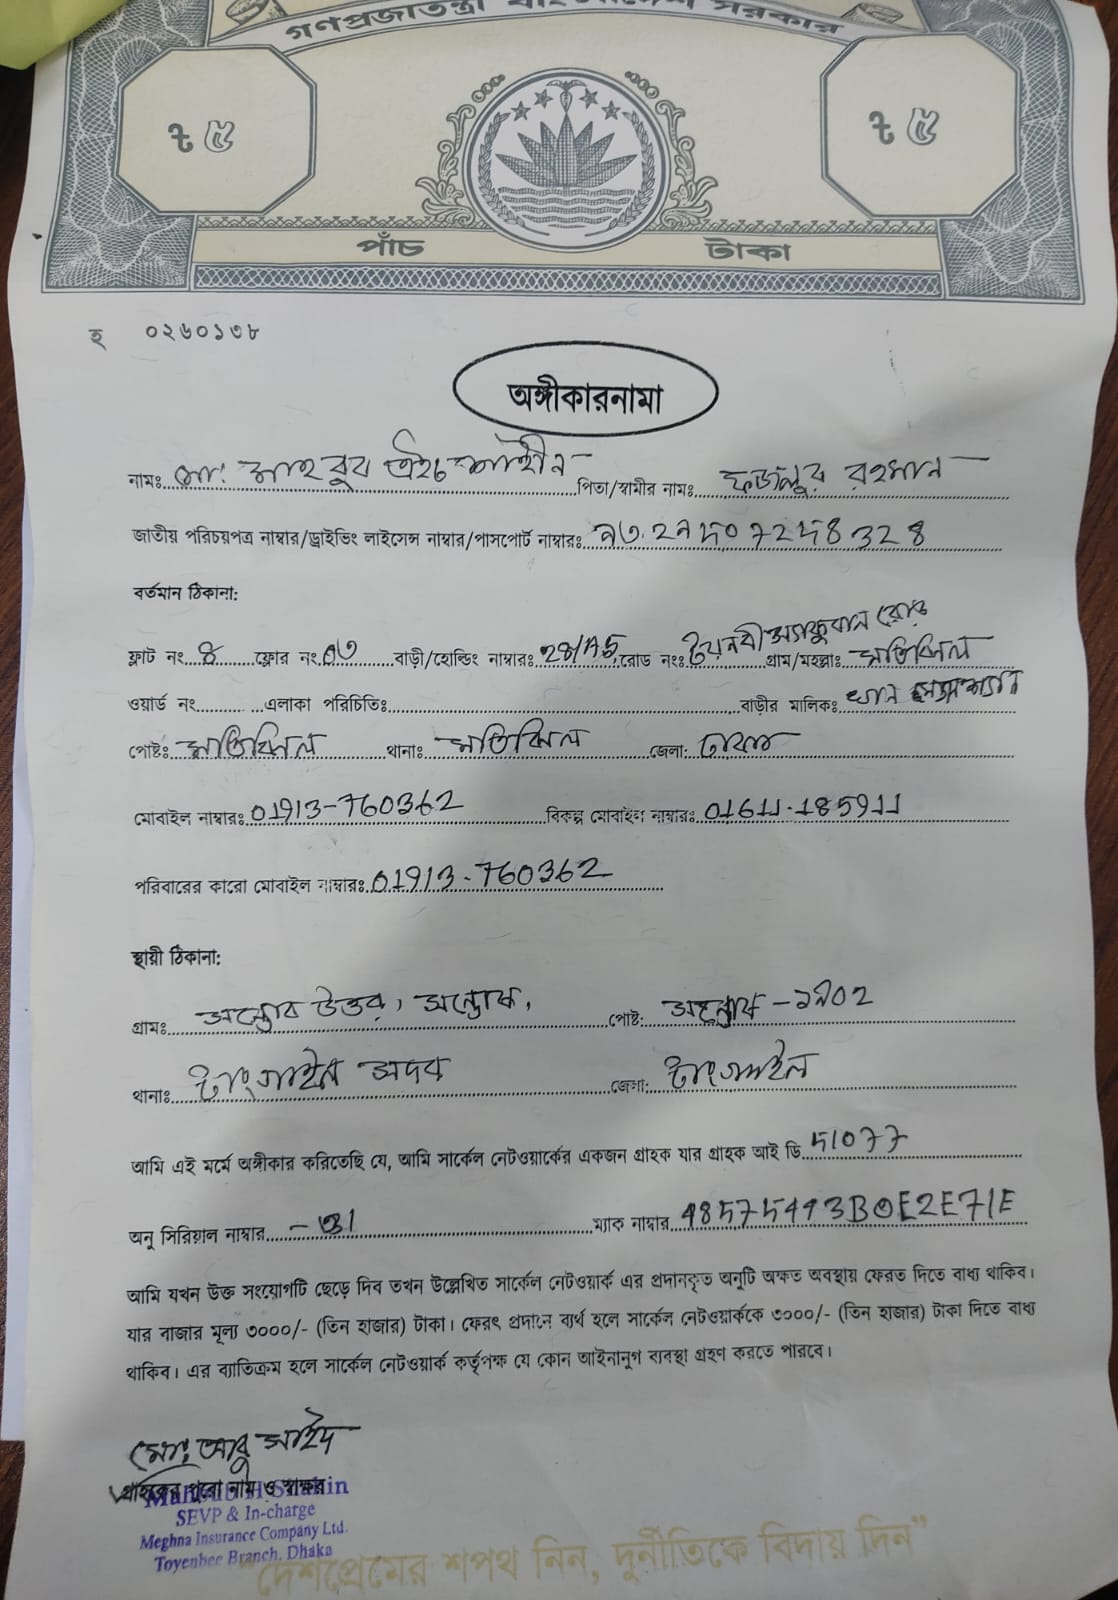 গণপ্রজাতন্ত্রী বাংলাদেশ সরকার
৳ ৫ ৳ ৫
পাঁচ টাকা
হ ০২৬০১৩৮
অঙ্গীকারনামা
নামঃ মো: মাহবুব এইচ শাহীন পিতা/স্বামীর নামঃ ফজলুর রহমান
জাতীয় পরিচয়পত্র নাম্বার/ড্রাইভিং লাইসেন্স নাম্বার/পাসপোর্ট নাম্বারঃ
বর্তমান ঠিকানা:
ফ্লাট নং 8 ফ্লোর নং ০৩ বাড়ী/হোল্ডিং নাম্বারঃ রোড নংঃ গ্রাম/মহল্লাঃ মতিঝিল
ওয়ার্ড নং এলাকা পরিচিতিঃ বাড়ীর মালিকঃ খান
পোষ্টঃ মতিঝিল থানাঃ মতিঝিল জেলা: ঢাকা
মোবাইল নাম্বারঃ 01913-760362 বিকল্প মোবাইল নাম্বারঃ 01611-185911
পরিবারের কারো মোবাইল নাম্বারঃ 01913-760362
স্থায়ী ঠিকানা:
গ্রামঃ সন্তোষ উত্তর, সন্তোষ, পোষ্ট: সন্তোষ - ১৯০২
থানাঃ টাংগাইল সদর জেলা: টাংগাইল
আমি এই মর্মে অঙ্গীকার করিতেছি যে, আমি সার্কেল নেটওয়ার্কের একজন গ্রাহক যার গ্রাহক আই ডি 51077
অনু সিরিয়াল নাম্বার ম্যাক নাম্বার 48575443B0E2E71E
আমি যখন উক্ত সংযোগটি ছেড়ে দিব তখন উল্লেখিত সার্কেল নেটওয়ার্ক এর প্রদানকৃত অনুটি অক্ষত অবস্থায় ফেরত দিতে বাধ্য থাকিব।
যার বাজার মূল্য ৩০০০/- (তিন হাজার) টাকা। ফেরৎ প্রদানে ব্যর্থ হলে সার্কেল নেটওয়ার্ককে ৩০০০/- (তিন হাজার) টাকা দিতে বাধ্য
থাকিব। এর ব্যাতিক্রম হলে সার্কেল নেটওয়ার্ক কর্তৃপক্ষ যে কোন আইনানুগ ব্যবস্থা গ্রহণ করতে পারবে।
মোঃ আবু সাইদ
গ্রাহকের পুরো নাম ও স্বাক্ষর
SEVP & In-charge
Meghna Insurance Company Ltd.
Toyenbee Branch, Dhaka
"দেশপ্রেমের শপথ নিন, দুর্নীতিকে বিদায় দিন"